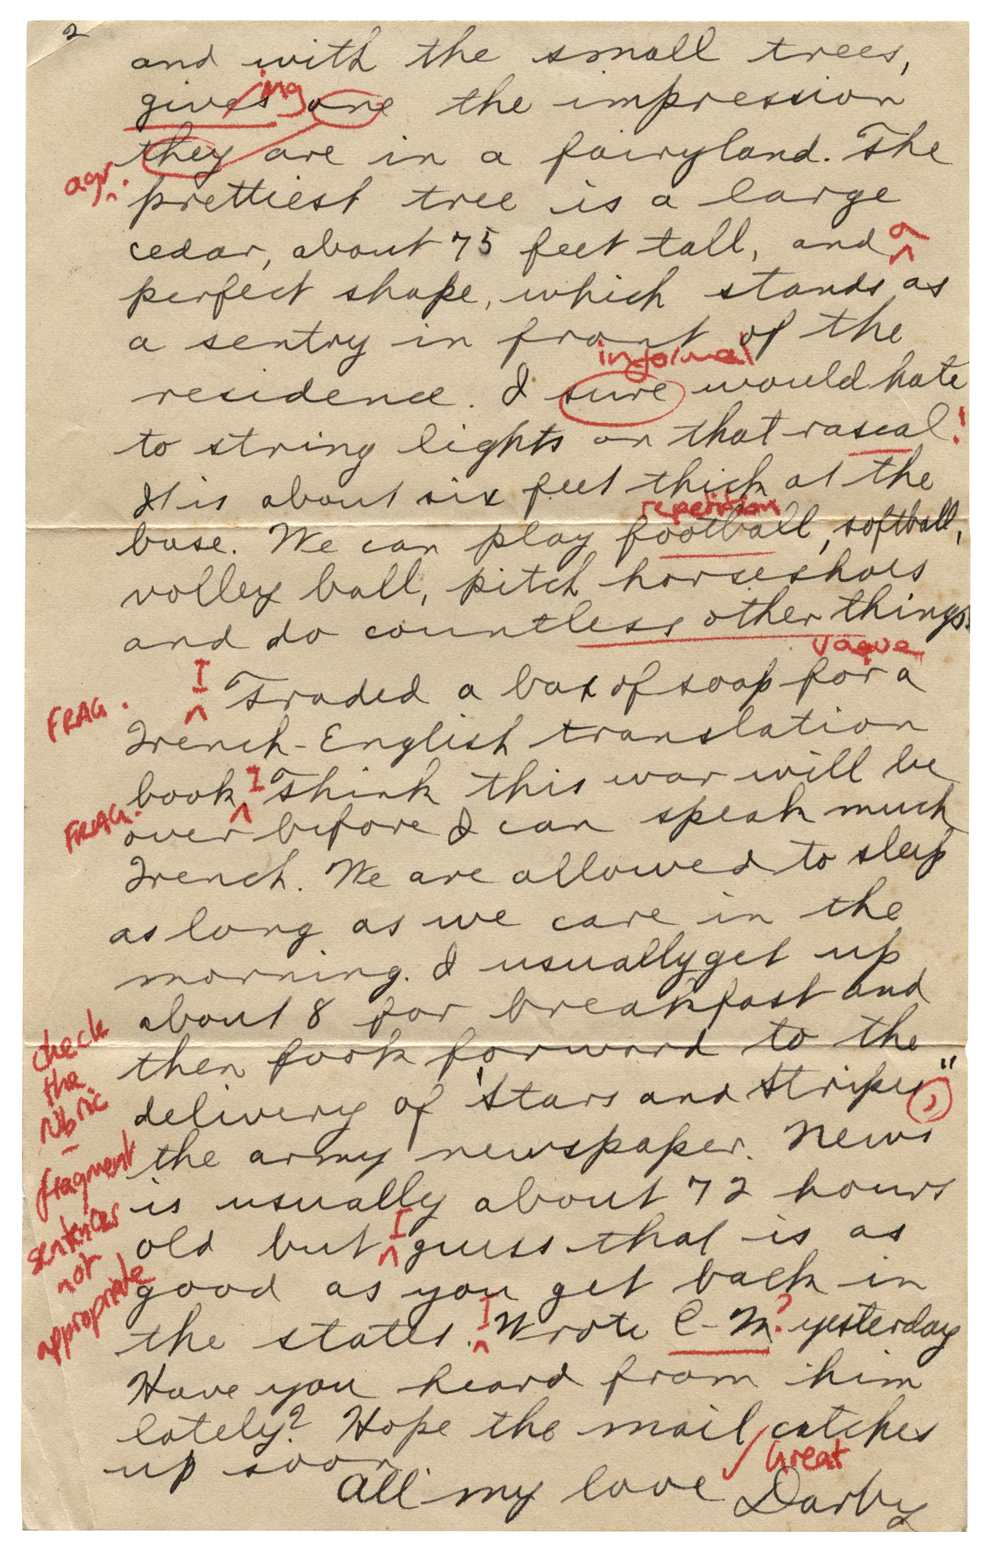 2
and with the small trees,
ing
gives one the impression
they are in a fairyland. The
agr.
prettiest tree is a large
cedar, about 75 feet tall, and
a
perfect shape, which stands as
a sentry in front of the
informal
residence. I sure would hate
to string lights on that rascal!
It is about six feet thick at the
repetition
base. We can play football, softball,
volley ball, pitch horseshoes
and do countless other things.
vague
I
FRAG. Traded a box of soap for a
French-English translation
I
book. Think this war will be
FRAG.
over before I can speak much
French. We are allowed to sleep
as long as we care in the
morning. I usually get up
about 8 for breakfast and
check
then look forward to the
the
delivery of "Stars and Stripes,"
rubric
the army newspaper. News
–
fragment
is usually about 72 hours
sentences
I
old but guess that is as
not
good as you get back in
appropriate
I
the states. Wrote C-M? yesterday
Have you heard from him
lately? Hope the mail catches
up soon.
Great
All my love Darby